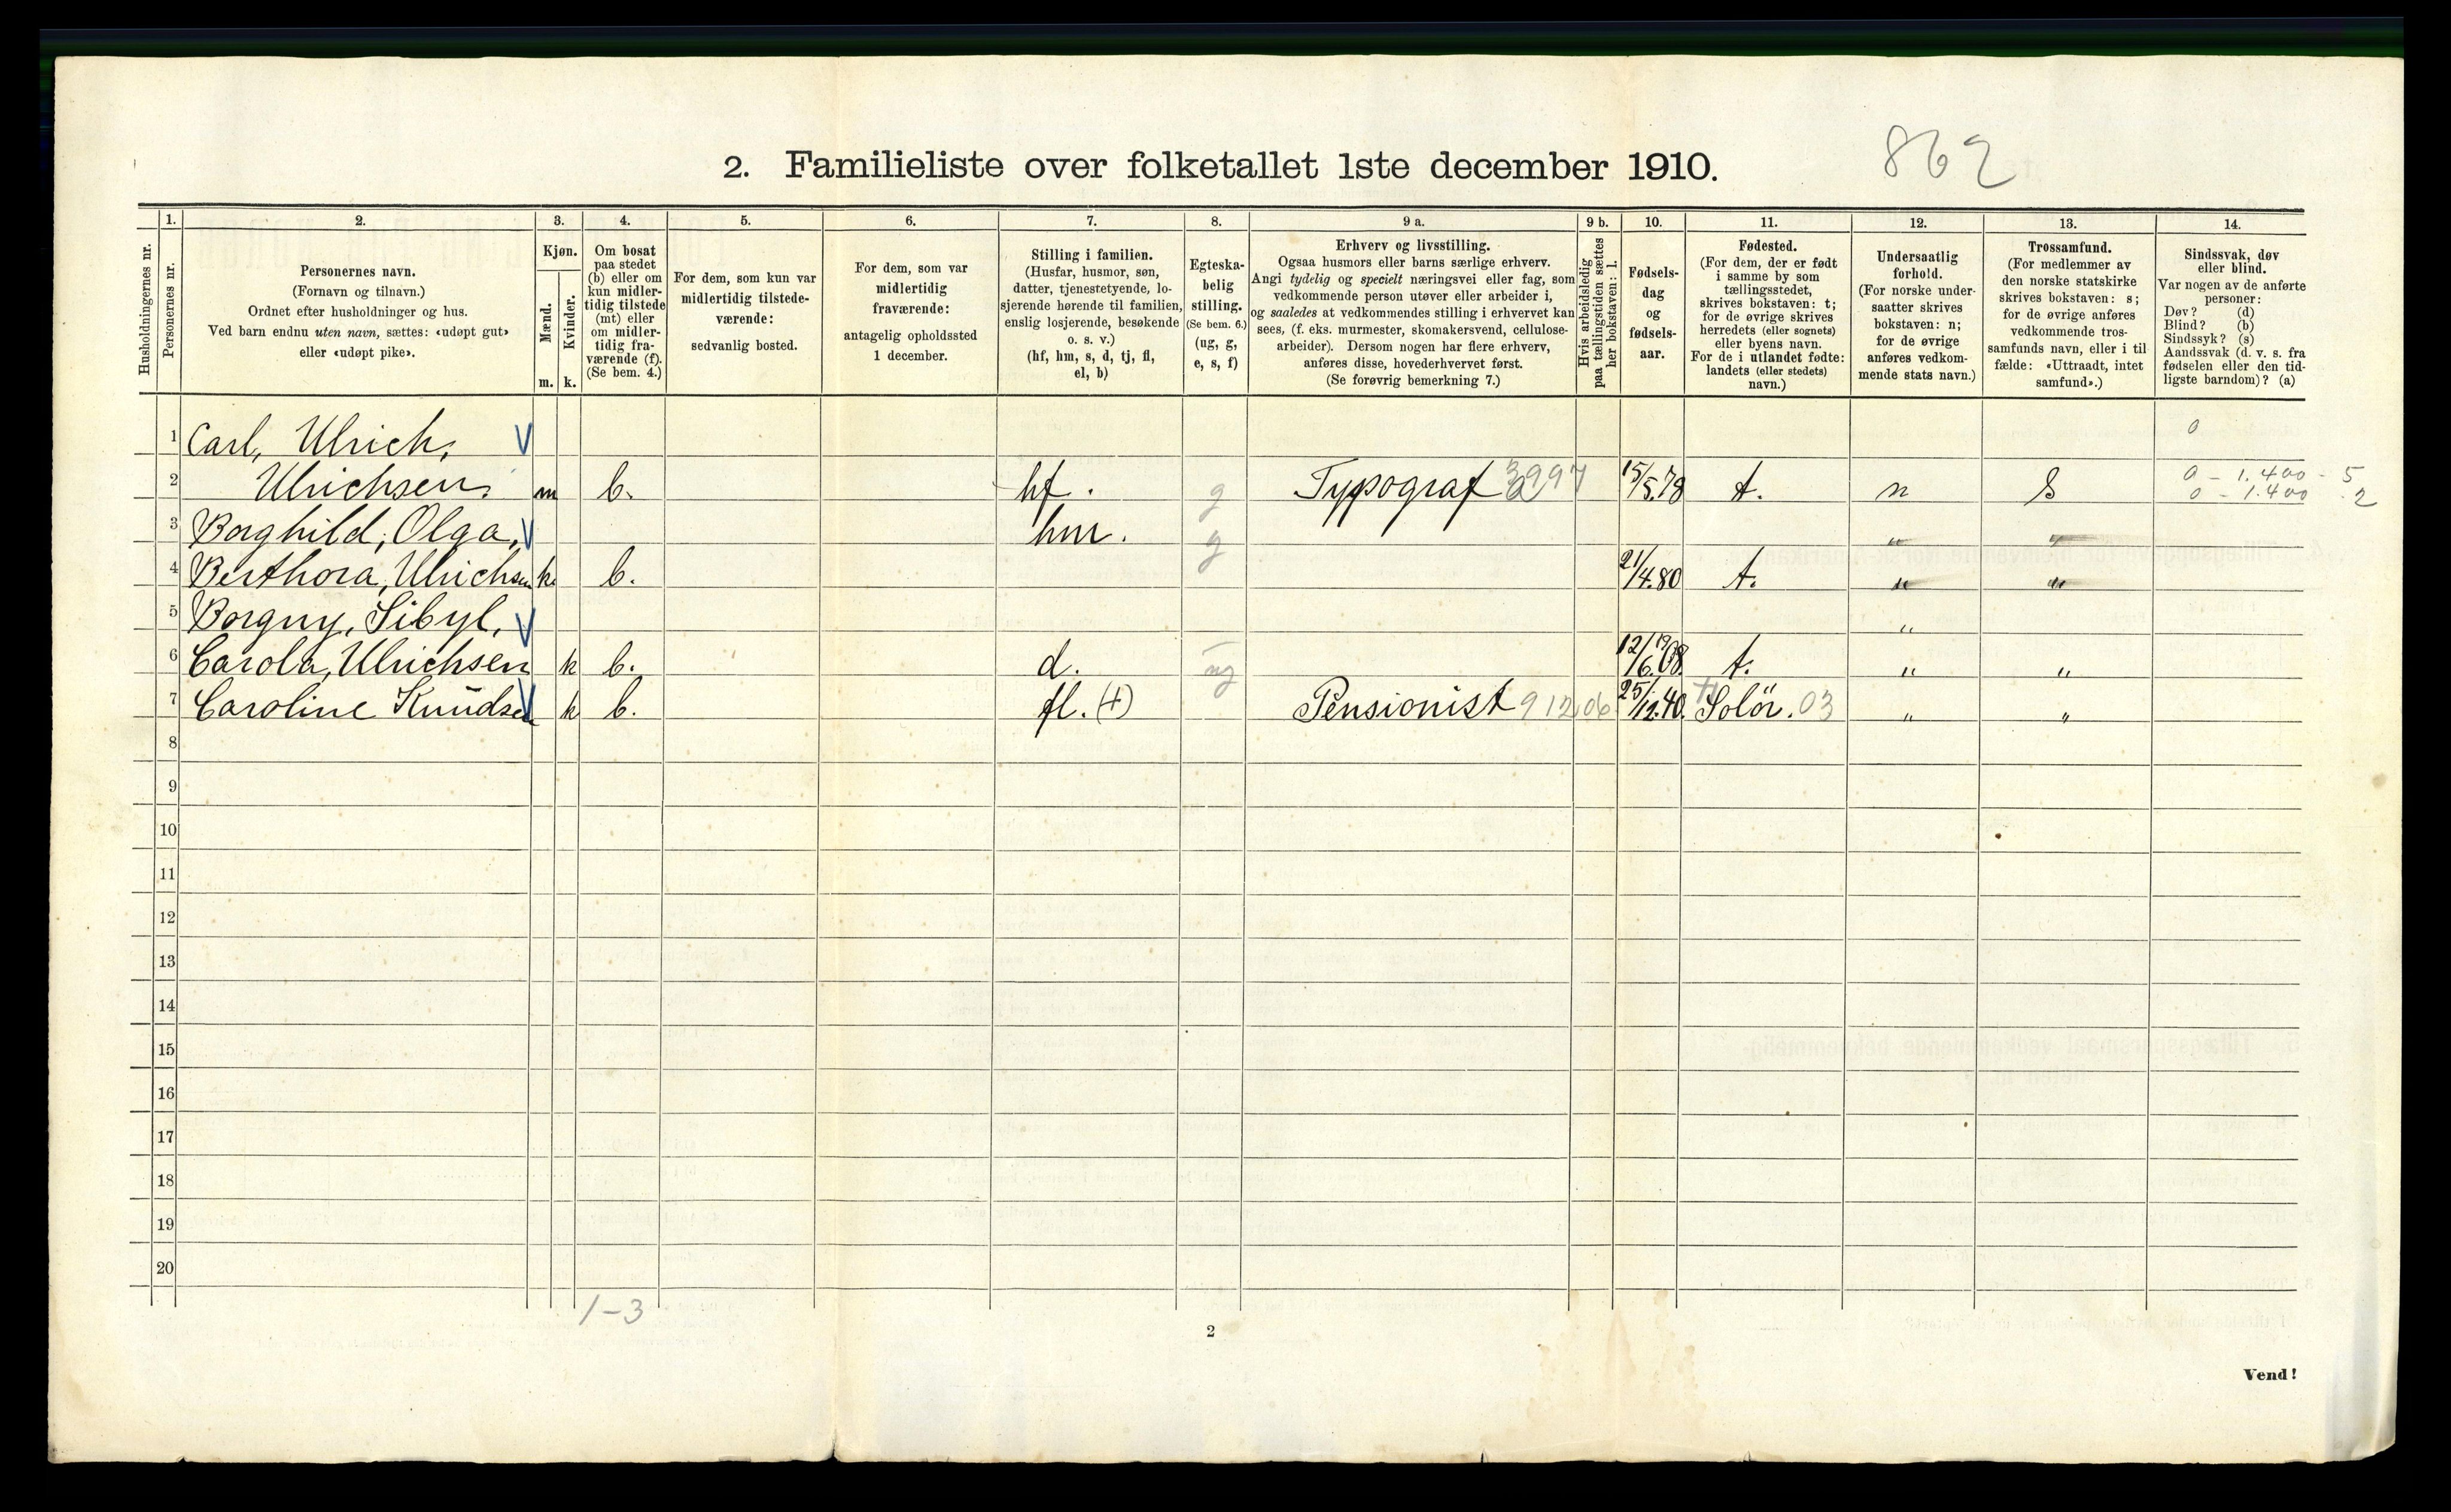 2. Familieliste over folketallet 1ste december 1910.
862
Husholdningernes nr.
1.
Personernes nr.
2.
Personernes navn.
(Fornavn og tilnavn.)
Ordnet efter husholdninger og hus.
Ved barn endnu uten navn, sættes: «udøpt gut»
eller «udøpt pike».
3.
Kjøn.
Mænd.
m.
Kvinder.
k.
4.
Om bosat
paa stedet
(b) eller om
kun midler-
tidig tilstede
(mt) eller
om midler-
tidig fra-
værende (f).
(Se bem. 4.)
5.
For dem, som kun var
midlertidig tilstede-
værende:
sedvanlig bosted.
6.
For dem, som var
midlertidig
fraværende:
antagelig opholdssted
1 december.
7.
Stilling i familien.
(Husfar, husmor, søn,
datter, tjenestetyende, lo-
sjerende hørende til familien,
enslig losjerende, besøkende
o. s. v.)
(hf, hm, s, d, tj, fl,
el, b)
8.
Egteska-
belig
stilling.
(Se bem. 6.)
(ug, g,
e, s, f)
9 a.
Erhverv og livsstilling.
Ogsaa husmors eller barns særlige erhverv.
Angi tydelig og specielt næringsvei eller fag, som
vedkommende person utøver eller arbeider i,
og saaledes at vedkommendes stilling i erhvervet kan
sees, (f. eks. murmester, skomakersvend, cellulose-
arbeider). Dersom nogen har flere erhverv,
anføres disse, hovederhvervet først.
(Se forøvrig bemerkning 7.)
9 b.
Hvis arbeidsledig
paa tællingstiden sættes
her bokstaven: l.
10.
Fødsels-
dag
og
fødsels-
aar.
11.
Fødested.
(For dem, der er født
i samme by som
tællingsstedet,
skrives bokstaven: t;
for de øvrige skrives
herredets (eller sognets)
eller byens navn.
For de i utlandet fødte:
landets (eller stedets)
navn.)
12.
Undersaatlig
forhold.
(For norske under-
saatter skrives
bokstaven: n;
for de øvrige
anføres vedkom-
mende stats navn.)
13.
Trossamfund.
(For medlemmer av
den norske statskirke
skrives bokstaven: s;
for de øvrige anføres
vedkommende tros-
samfunds navn, eller i til-
fælde: «Uttraadt, intet
samfund».)
14.
Sindssvak, døv
eller blind.
Var nogen av de anførte
personer:
Døv? (d)
Blind? (b)
Sindssyk? (s)
Aandssvak (d. v. s. fra
fødselen eller den tid-
ligste barndom)? (a)
1 Carl, Ulrich, V 0
2 Ulrichsen. m b. hf. g Typograf 15/5.78 t. n S 0 - 1.400 - 5
0 - 1.400 - 2
3 Borghild, Olga, V hm. g " "
4 Berthora, Ulrichsen k b. 21/4.80 t. " "
5 Borguy, Sibyl, V "
6 Carola, Ulrichsen k b. d. ug 12/6.1908. t. " "
7 Caroline Knudsen V k b. fl. (+) Pensionist 91206 25/12.40. Solör. 03 " "
8
9
10
11
12
13
14
15
16
17
18
19
20
1-3
2
Vend!